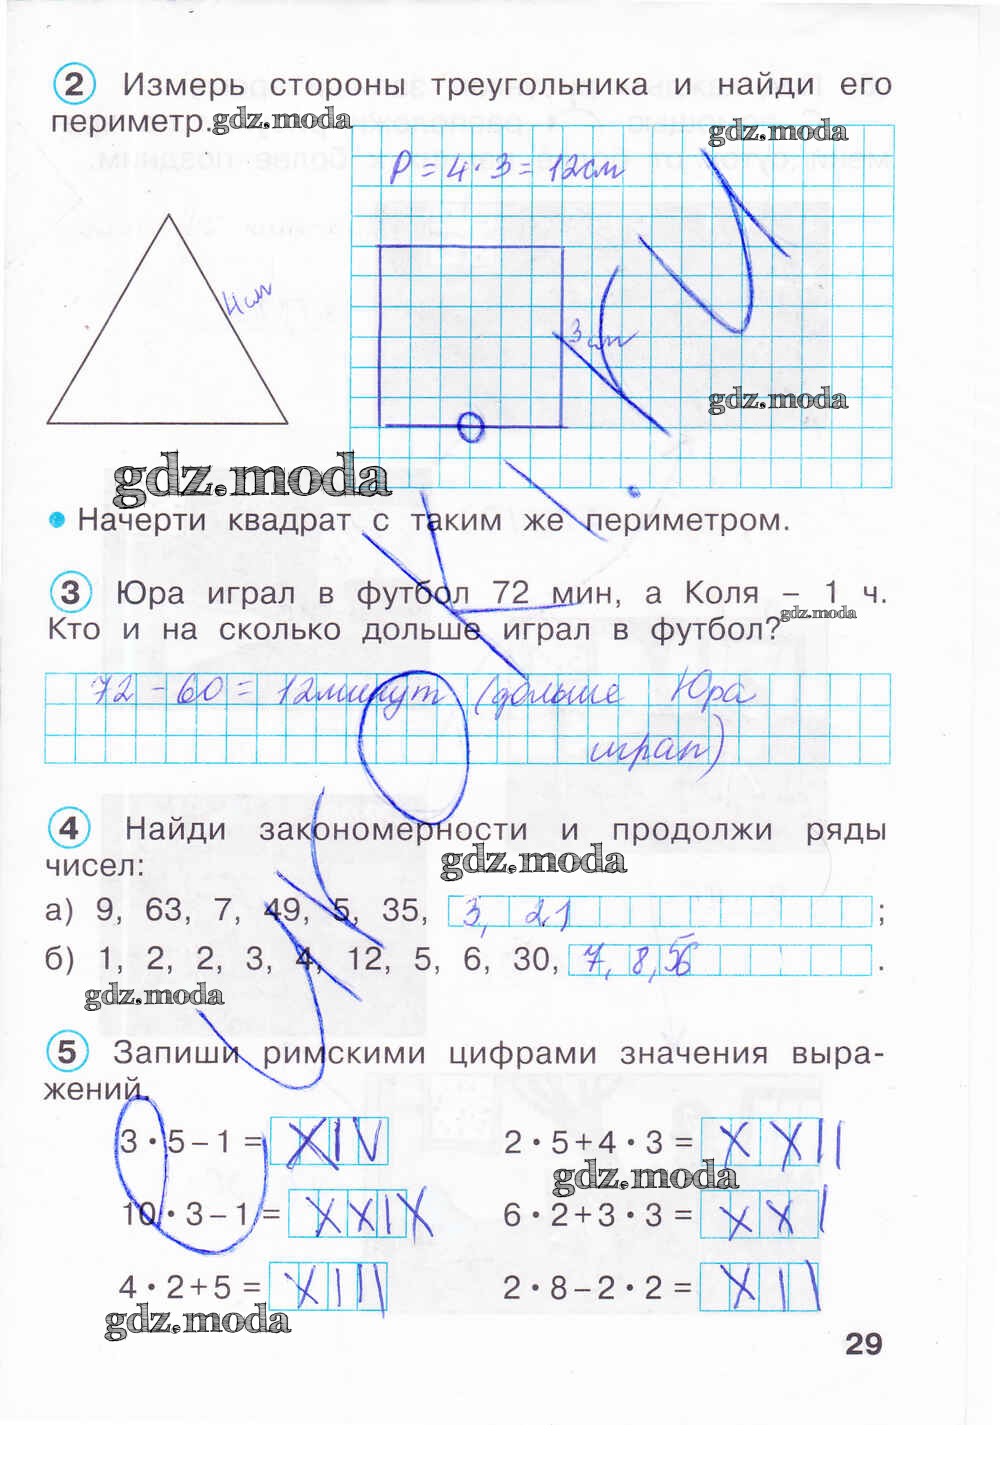 2 Измерь стороны треугольника и найди его
периметр. gdz.moda
gdz.moda
P = 4 · 3 = 12 см
4 см
3 см
gdz.moda
gdz.moda
• Начерти квадрат с таким же периметром.
3 Юра играл в футбол 72 мин, а Коля – 1 ч.
gdz.moda
Кто и на сколько дольше играл в футбол?
72 – 60 = 12 минут (дольше Юра
играл)
4 Найди закономерности и продолжи ряды
чисел:
gdz.moda
а) 9, 63, 7, 49, 5, 35, 3, 21 ;
б) 1, 2, 2, 3, 4, 12, 5, 6, 30, 7, 8, 56 .
gdz.moda
5 Запиши римскими цифрами значения выра-
жений.
3 · 5 – 1 = XIV 2 · 5 + 4 · 3 = XXII
gdz.moda
10 · 3 – 1 = XXIX 6 · 2 + 3 · 3 = XXI
4 · 2 + 5 = XIII 2 · 8 – 2 · 2 = XII
gdz.moda
29